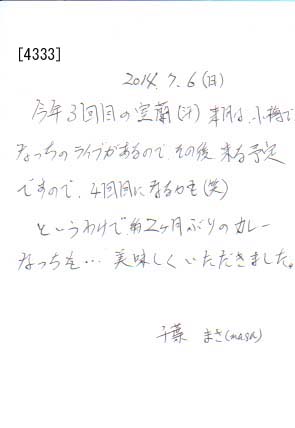 [4333]
2014.7.6(日)
今年3回目の室蘭(汗) 来月は、小樽で
なっちのライブがあるので、その後来る予定
ですので、4回目になるかも(笑)
というわけで、約2ヶ月ぶりのカレー
なっちも…美味しくいただきました。
千葉 まさ(masa)